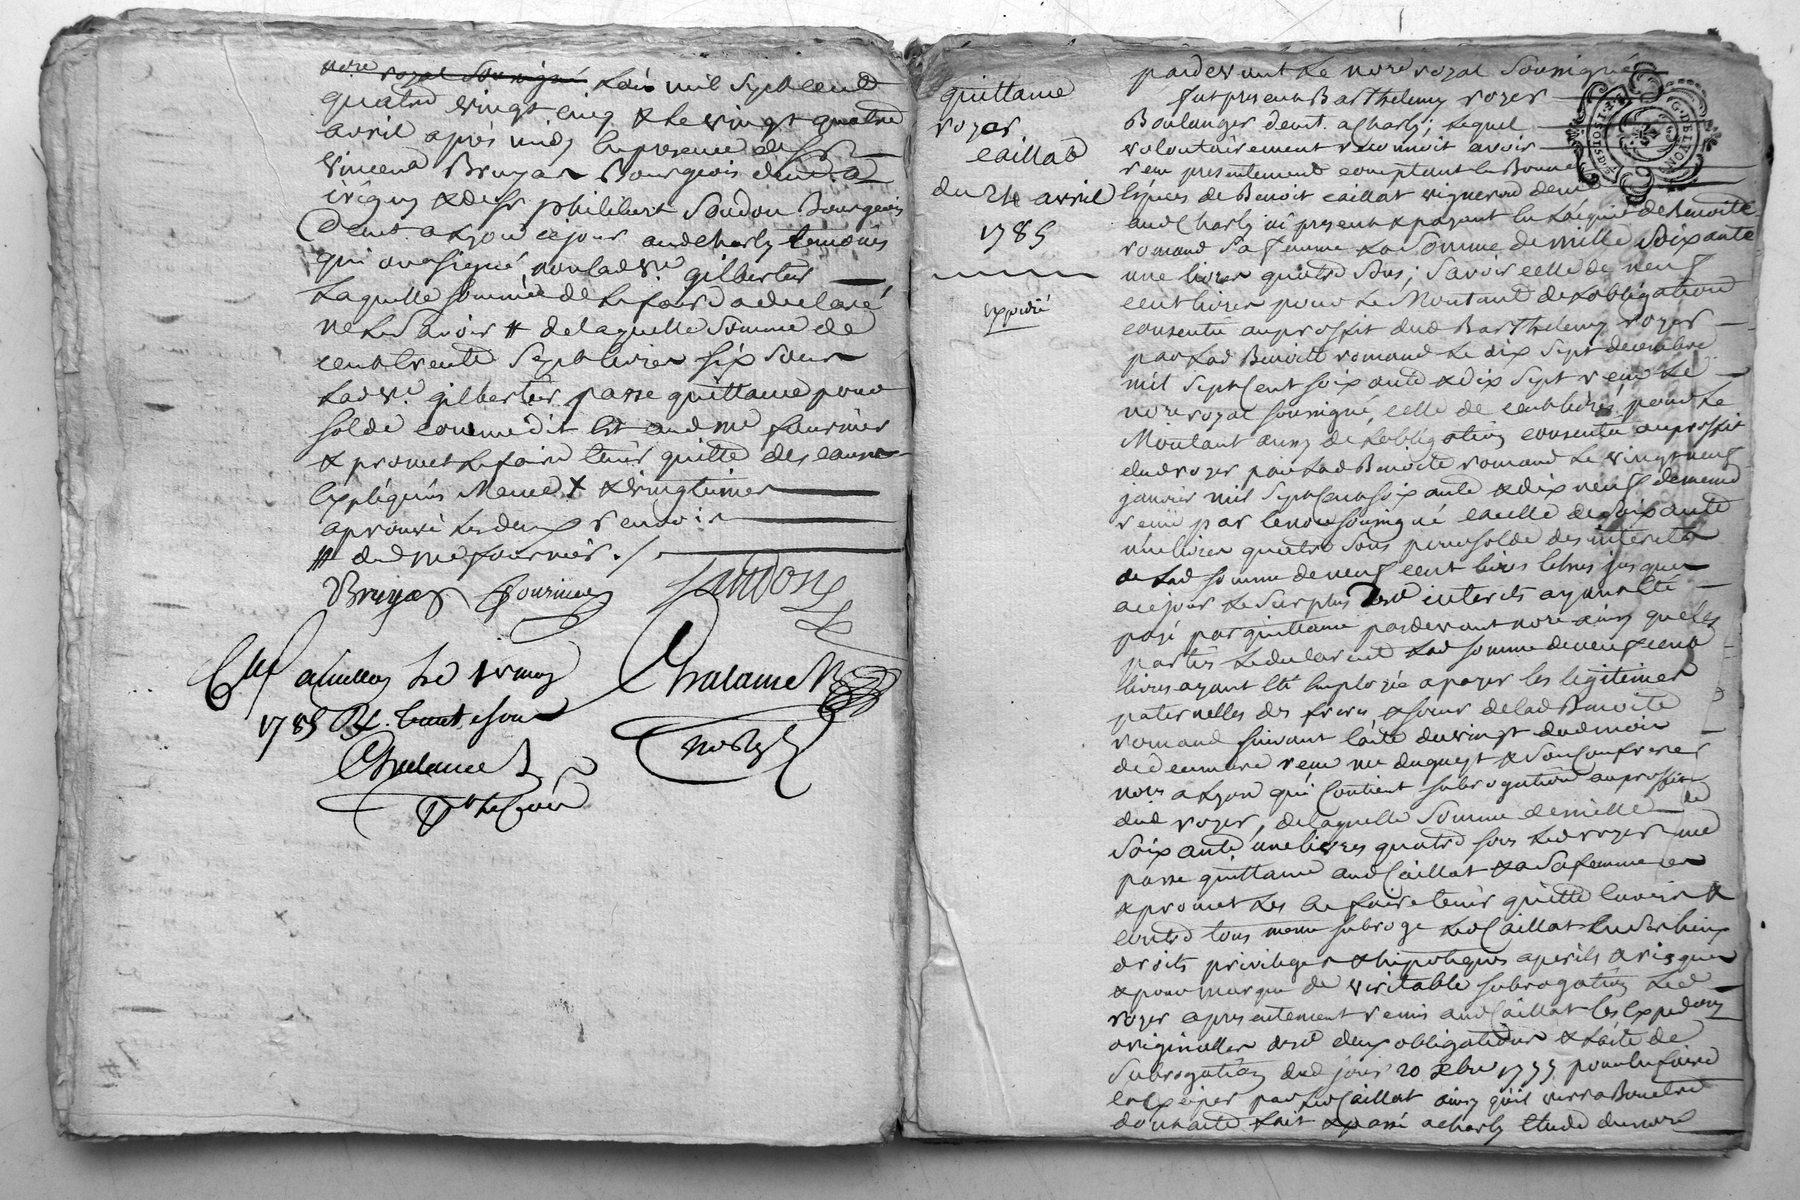 nore royal soussigné Lan mil sept cent
quatre vingt cinq & le vingt quatre
avril après midy En presence de Sr
Vincent Bruyas Bourgeois demt. a
irigny & de Sr philibert Soudon Bourgeois
demt. a Lyon ce jour aud Charly temoins
qui ont signé, non lad ve gilbertier
Laquelle sommée de le faire a declaré
ne le savoir # de laquelle somme de
cent trente sept livres six sous
Lad ve. gilbertier passe quittance pour
solde comme dit est aud me fournier
& promet le faire tenir quitte des causes
Expliquées Meme X & vingtiemes
aprouvé les deux renvois
# dud me fournier ./
Bruyas fournier
Chalamel
1785
Chalamel
nore
quittance
royer
caillat
du 24 avril
1785
expedié
pardevant le nore royal soussigné
fut present Barthelemy royer
Boulanger demt. a Charly; lequel
volontairement reconnoit avoir
reçu presentement comptant En Bonnes
Espèces de Benoit caillat vigneron demt
aud Charly ici present & payant En L'acquit de Benoite
romand sa femme La somme de mille soixante
une livres quatre sous; savoir celle de neuf
cent livres pour le Montant de L'obligation
consentie au proffit dud Barthelemy royer
par Lad Benoitte romand le dix sept decembre
mil sept Cent soix ante & dix sept reçue Le
nore royal soussigné, celle de cent livres pour Le
Montant aussy de L'obligation consentie au proffit
dud royer par Lad Benoite romand le vingt neuf
janvier mil sept Cent soix ante & dix neuf de meme
reçue par le nore soussigné & celle de soixante
une livres quatre sous pour solde des interets
de Lad somme de neuf cent livres Echus jusques
a ce jour Le surplus desd interets ayant Eté
payé par quittance pardevant nore ainsy que les
parties Le declarent Lad somme de neuf cent
livres ayant Eté Employée a payer les legitimes
paternelles des freres & soeur de lad Benoite
romand suivant l'acte du vingt dud mois
de decembre reçu me dugueyt & son Confrere
nores a Lyon qui Contient subrogation au proffit
dud royer, de laquelle somme de mille
soixante une livres quatre sous Led royer
passe quittance aud Caillat & a sa femme
& promet Les En faire tenir quitte Envers &
contre tous meme subroge Led Caillat En ses lieux
droits privileges & hipoteques a perils & risques
& pour marque de veritable subrogation Led
royer a presentement remis aud Caillat les Expedons
originelles desd deux obligations & L'acte de
subrogation dud jour 20 Xbre 1777 pour En faire
par Led Caillat ainsy qu'il verra Bon Etre
dont acte fait & passé a Charly Etude du nore